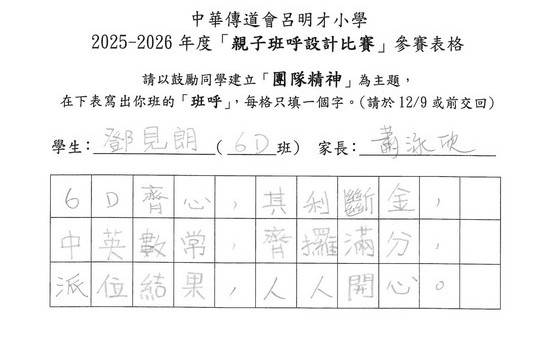 中華傳道會呂明才小學
2025-2026 年度「親子班呼設計比賽」參賽表格
請以鼓勵同學建立「團隊精神」為主題，
在下表寫出你班的「班呼」，每格只填一個字。（請於 12/9 或前交回）
學生：鄧見朗（ 6D 班） 家長：蕭泳欣
6D齊心，其利斷金，
中英數常，齊攞滿分，
派位結果，人人開心。